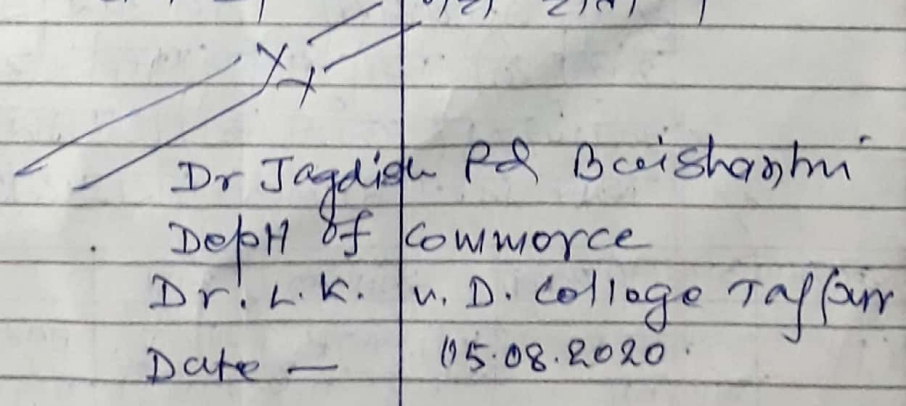 Dr Jagdish Pd Baishanhni
Deptt of Commorce
Dr. L. K. V. D. College Tajpur
Date — 05.08.2020.